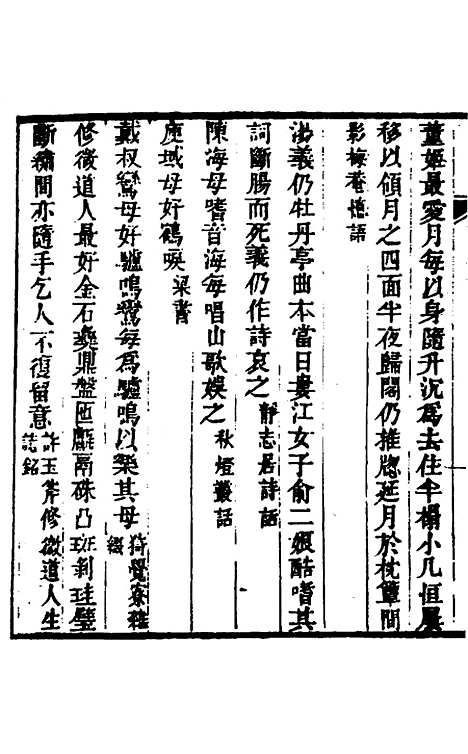 董姬最愛月每以身隨升沉為去住半榻小几恒屢
移以領月之四面半夜歸閣仍推牕延月於枕簟間
影梅菴憶語
湯義仍牡丹亭曲本當日婁江女子俞二娘酷嗜其
詞斷腸而死義仍作詩哀之靜志居詩話
陳海母嗜音海每唱山歌娛之秋燈叢話
庾域母好鶴唳梁書
戴叔鸞母好驢鳴鸞每為驢鳴以樂其母猗覺寮雜
綴
修微道人最好金石彝鼎盤匜甗鬲硃凸斑剝珪璧
斷繡間亦隨手乞人不復留意許玉斧修微道人生
誌銘